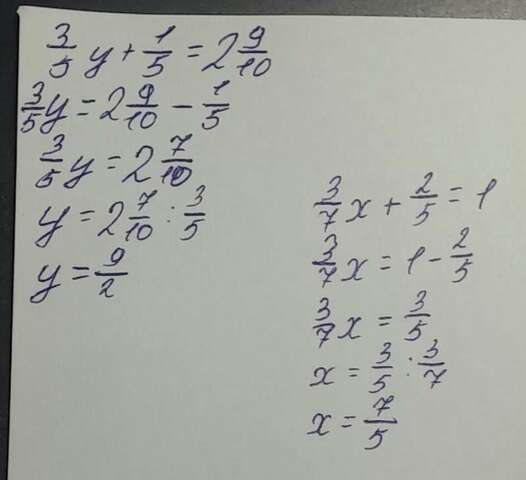 3/5 y + 1/5 = 2 9/10
3/5 y = 2 9/10 - 1/5
3/5 y = 2 7/10
y = 2 7/10 : 3/5
y = 9/2
3/7 x + 2/5 = 1
3/7 x = 1 - 2/5
3/7 x = 3/5
x = 3/5 : 3/7
x = 7/5